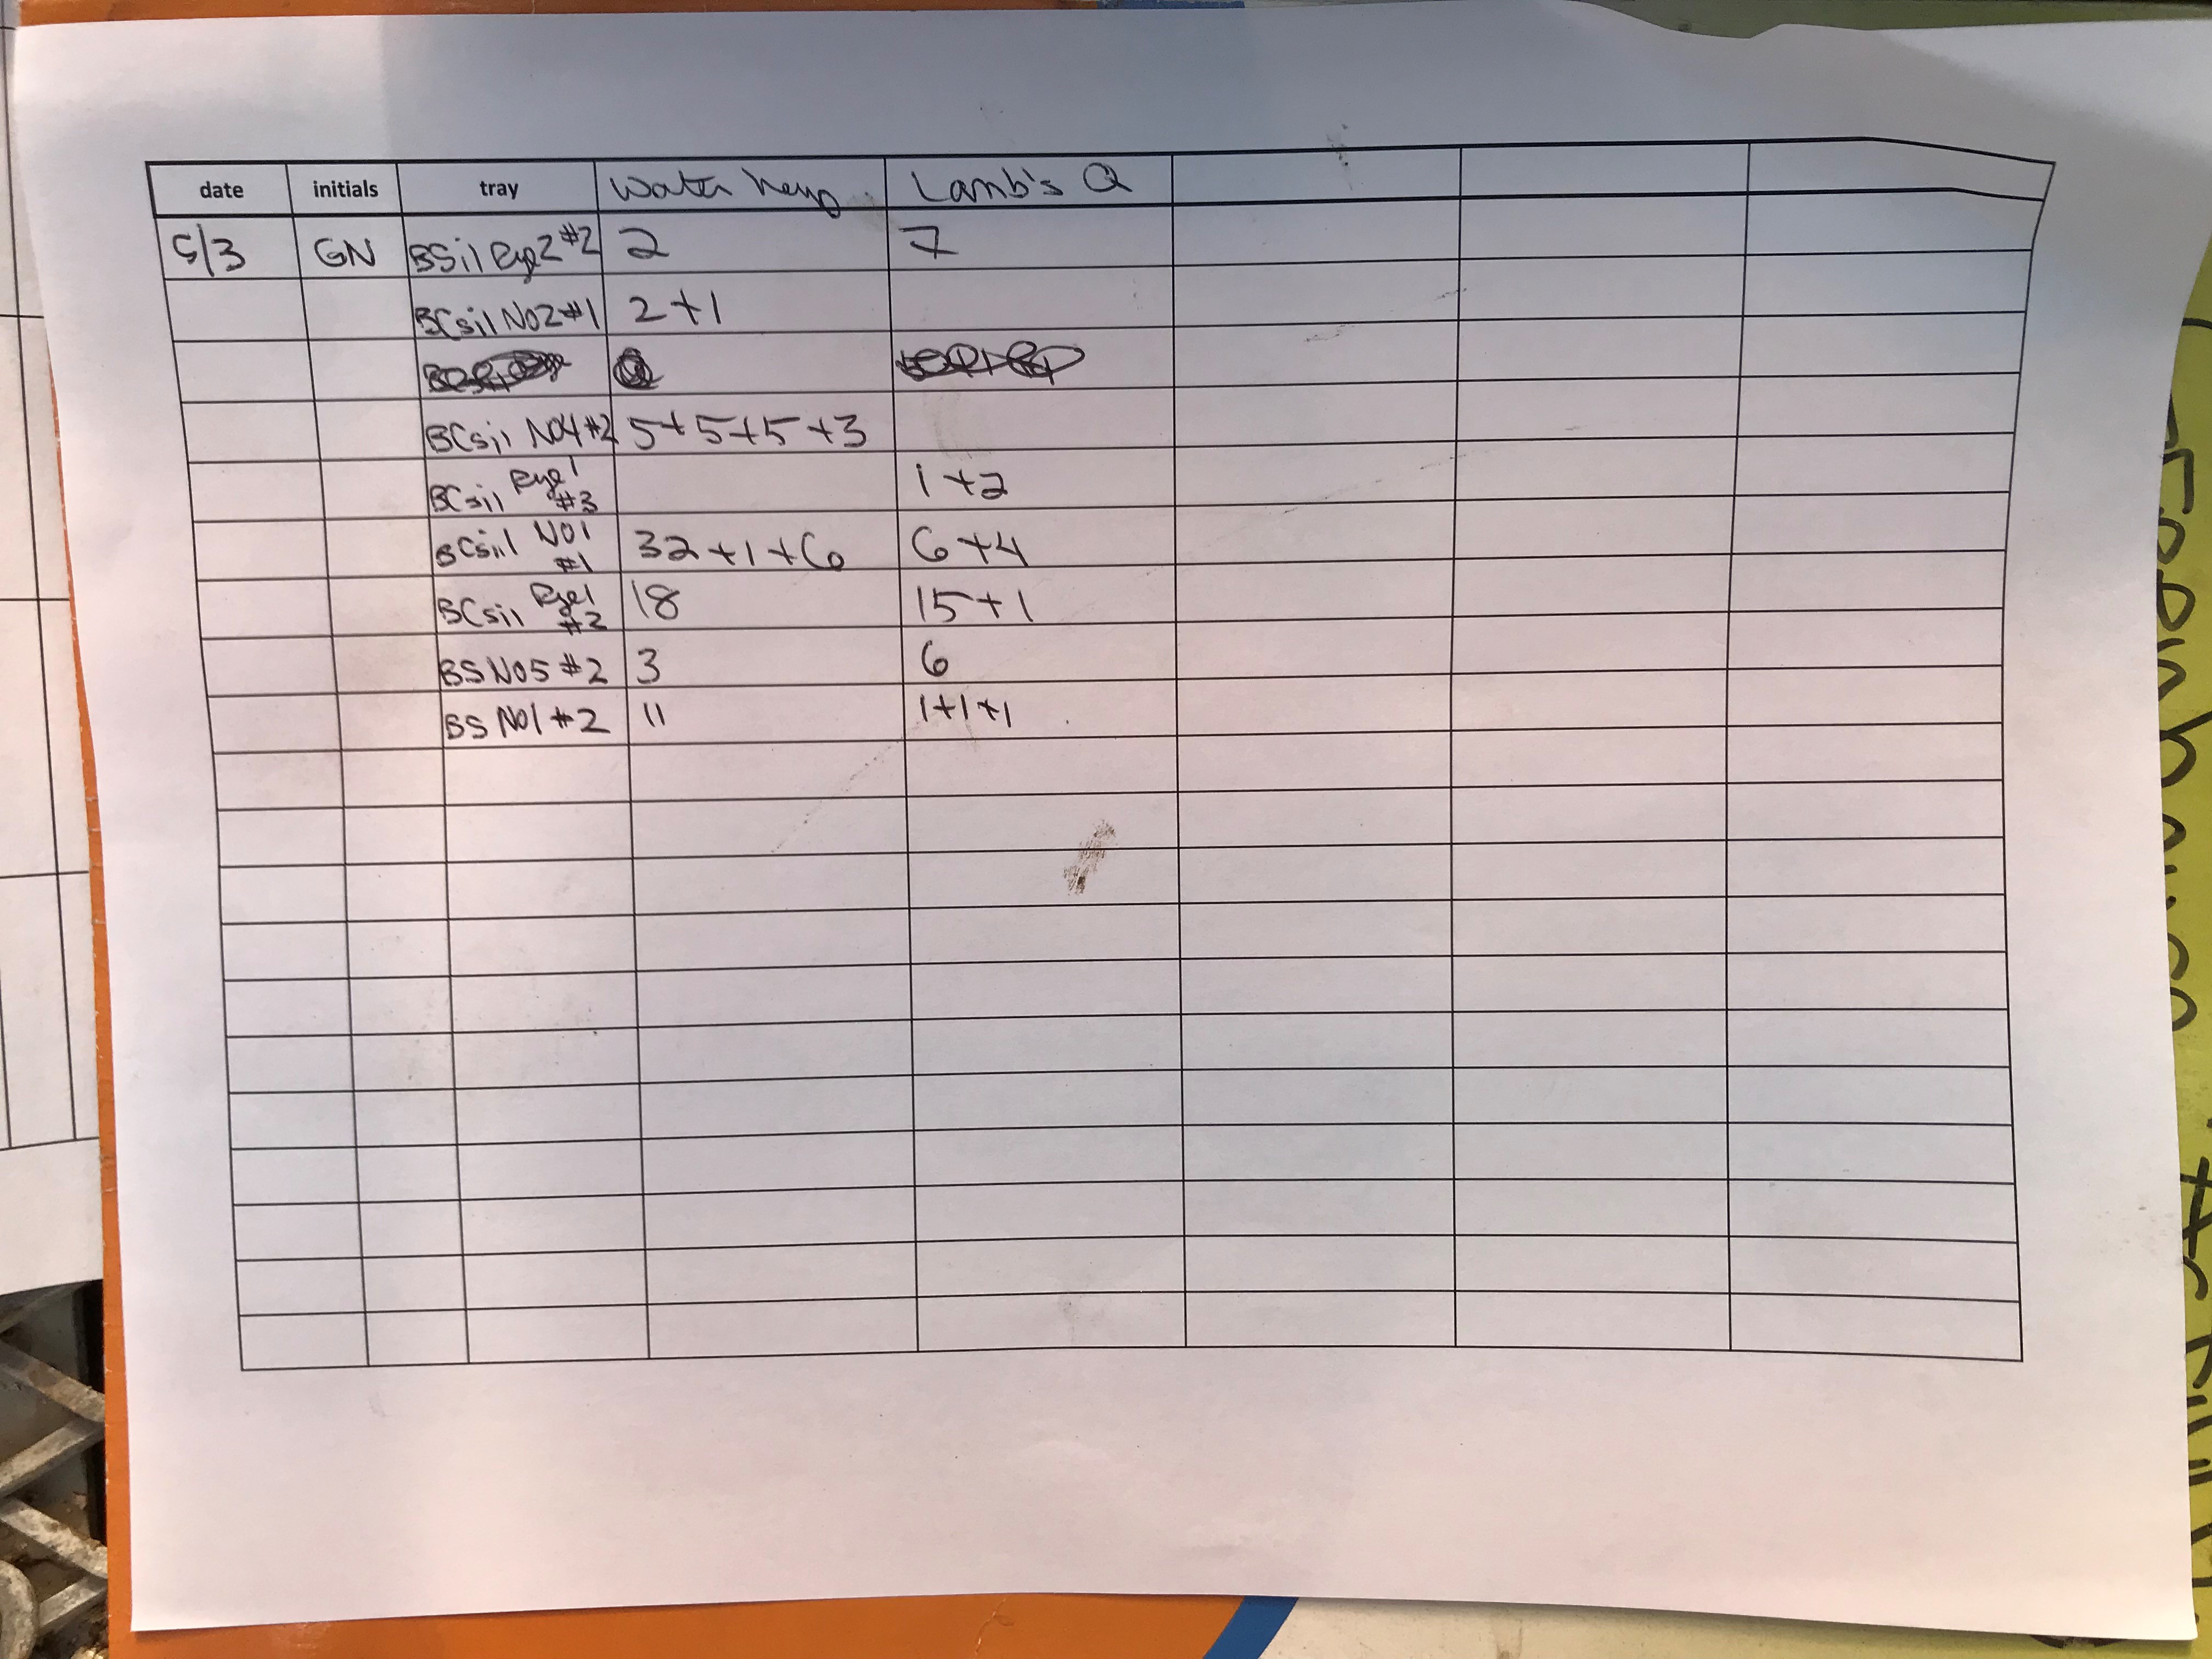 date initials tray Water hemp Lamb's Q
5/3 GN BSil Rye2 #2 2 7
BCsil NO2 #1 2+1
BCsil NO4 #2 5+5+5+3
BCsil Rye1 #3 1+2
BCsil NO1 #1 32+1+6 6+4
BCsil Rye1 #2 18 15+1
BS NO5 #2 3 6
BS NO1 #2 11 1+1+1